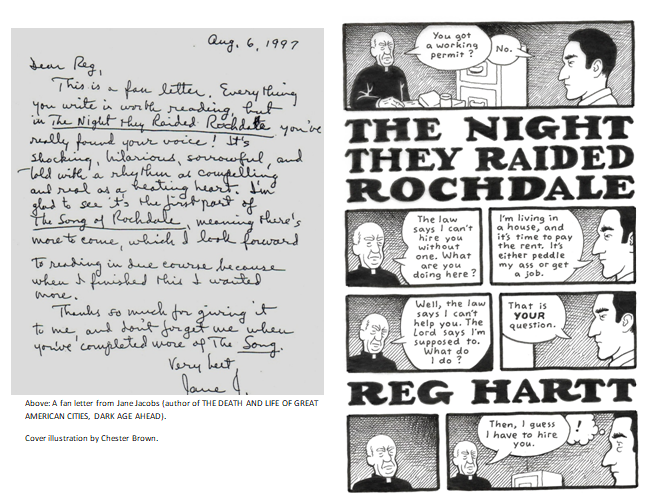 Aug. 6, 1997
Dear Reg,
This is a fan letter. Everything
you write is worth reading, but
in The Night they Raided Rochdale you've
really found your voice! It's
shocking, hilarious, sorrowful, and
told with a rhythm as compelling
and real as a beating heart. I'm
glad to see it's the first part of
The Song of Rochdale, meaning there's
more to come, which I look forward
to reading in due course because
when I finished this I wanted
more.
Thanks so much for giving it
to me, and don't forget me when
you've completed more of The Song.
Very best
Jane J.
Above: A fan letter from Jane Jacobs (author of THE DEATH AND LIFE OF GREAT
AMERICAN CITIES, DARK AGE AHEAD).
Cover illustration by Chester Brown.
You got
a working
permit?
No.
THE NIGHT
THEY RAIDED
ROCHDALE
The law
says I can't
hire you
without
one. What
are you
doing here?
I'm living in
a house, and
it's time to pay
the rent. It's
either peddle
my ass or get
a job.
Well, the law
says I can't
help you. The
Lord says I'm
supposed to.
What do
I do?
That is
YOUR
question.
REG HARTT
Then, I guess
I have to hire
you.
!